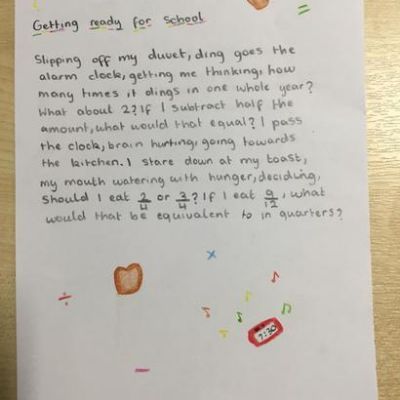 =
Getting ready for School
Slipping off my duvet, ding goes the
alarm clock, getting me thinking, how
many times it dings in one whole year?
What about 2? If I subtract half the
amount, what would that equal? I pass
the clock, brain hurting, going towards
the kitchen. I stare down at my toast,
my mouth watering with hunger, deciding,
Should I eat 2/4 or 3/4? If I eat 9/12, what
would that be equivalent to in quarters?
×
÷
7:30
−